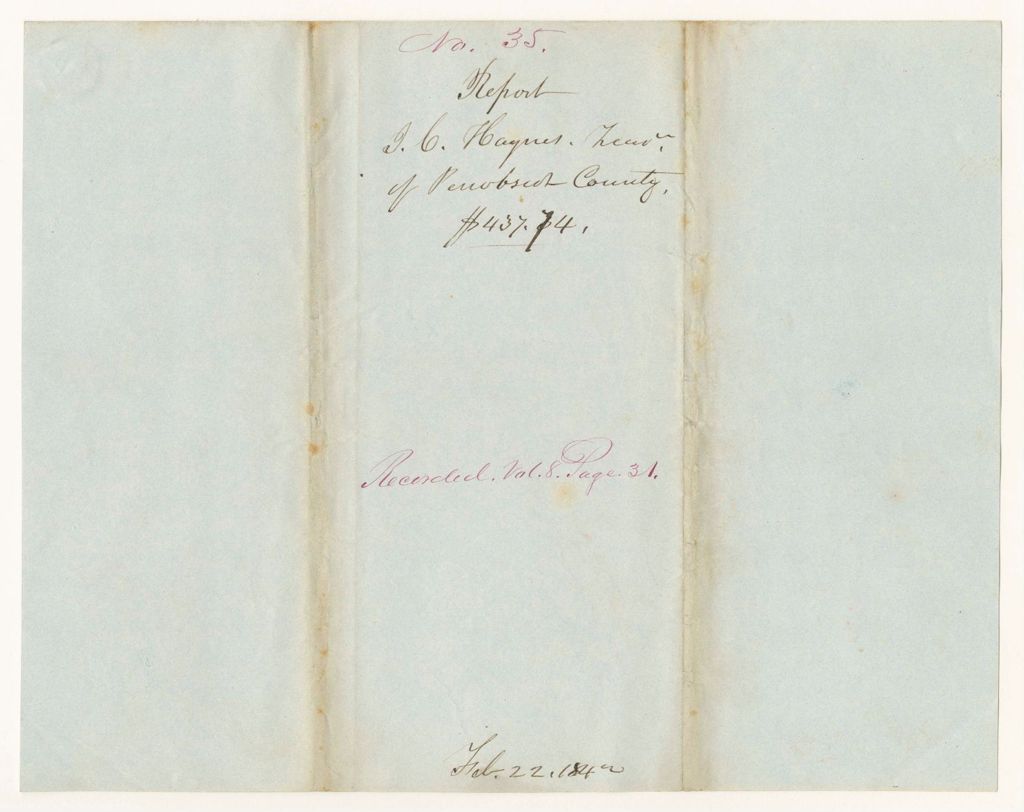 No. 35.
Report
J. C. Haynes. Treasr.
of Penobscot County,
$437.74.
Recorded. Vol. 8. Page. 31.
Feb. 22. 1842